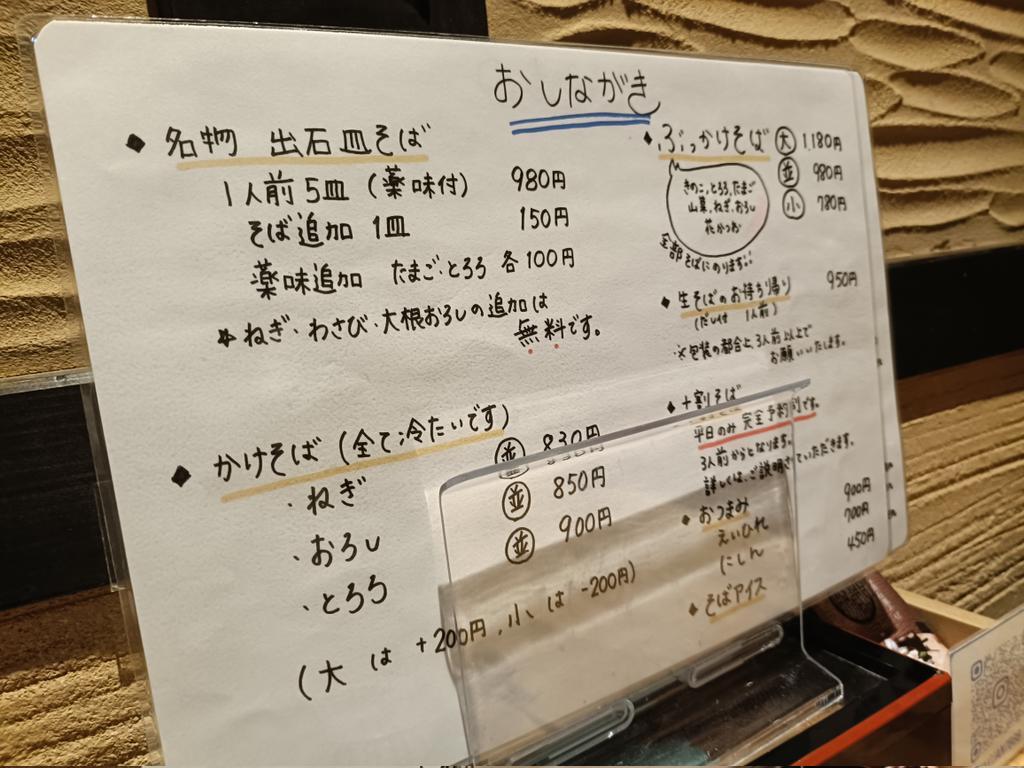 おしながき
◆ 名物 出石皿そば
1人前 5皿 (薬味付) 980円
そば追加 1皿 150円
薬味追加 たまご・とろろ 各100円
＊ねぎ・わさび・大根おろしの追加は
無料です。
◆ かけそば (全て冷たいです)
・ねぎ 並 830円
・おろし 並 850円
・とろろ 並 900円
(大 は +200円, 小 は -200円)
◆ ぶっかけそば 大 1,180円
並 980円
小 780円
きのこ, とろろ, たまご
山菜, ねぎ, おろし
花かつお
全部そばにのります!!
◆ 生そばのお持ち帰り 950円
(だし付 1人前)
※包装の都合上, 3人前以上で
お願いいたします。
◆ 十割そば
平日のみ 完全予約制です。
3人前からとなります。
詳しくは、ご説明させていただきます。
◆ おつまみ
えいひれ 900円
にしん 700円
◆ そばアイス 450円